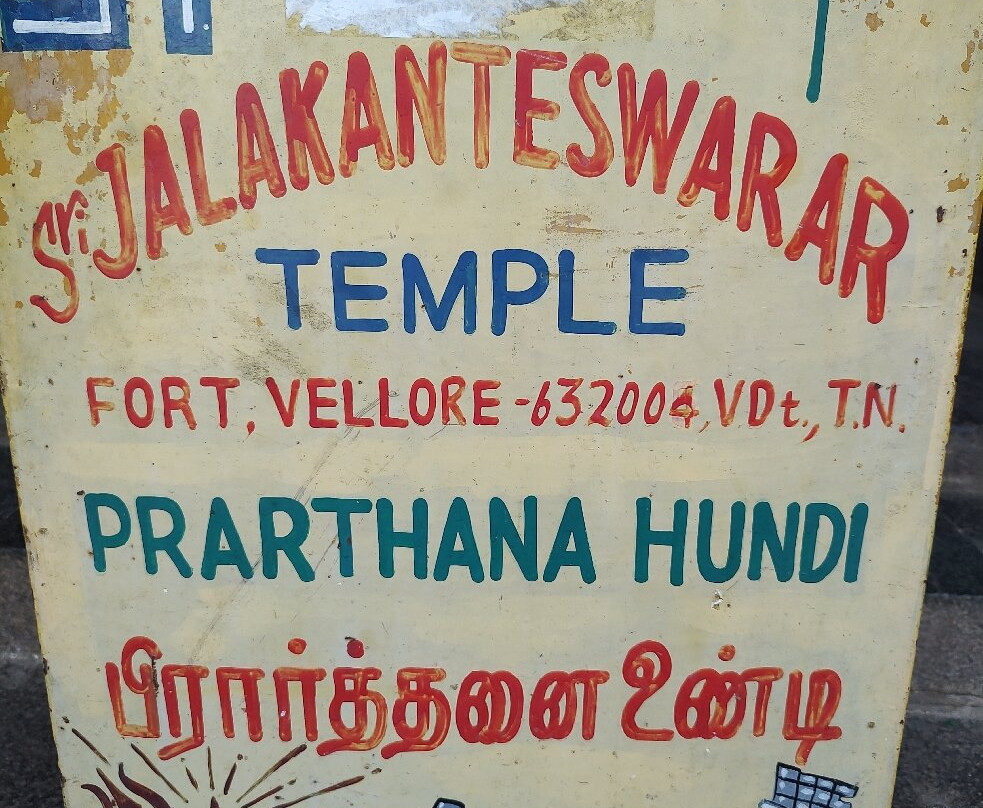 Sri JALAKANTESWARAR
TEMPLE
FORT, VELLORE -632004, VDt., T.N.
PRARTHANA HUNDI
பிரார்த்தனை உண்டி